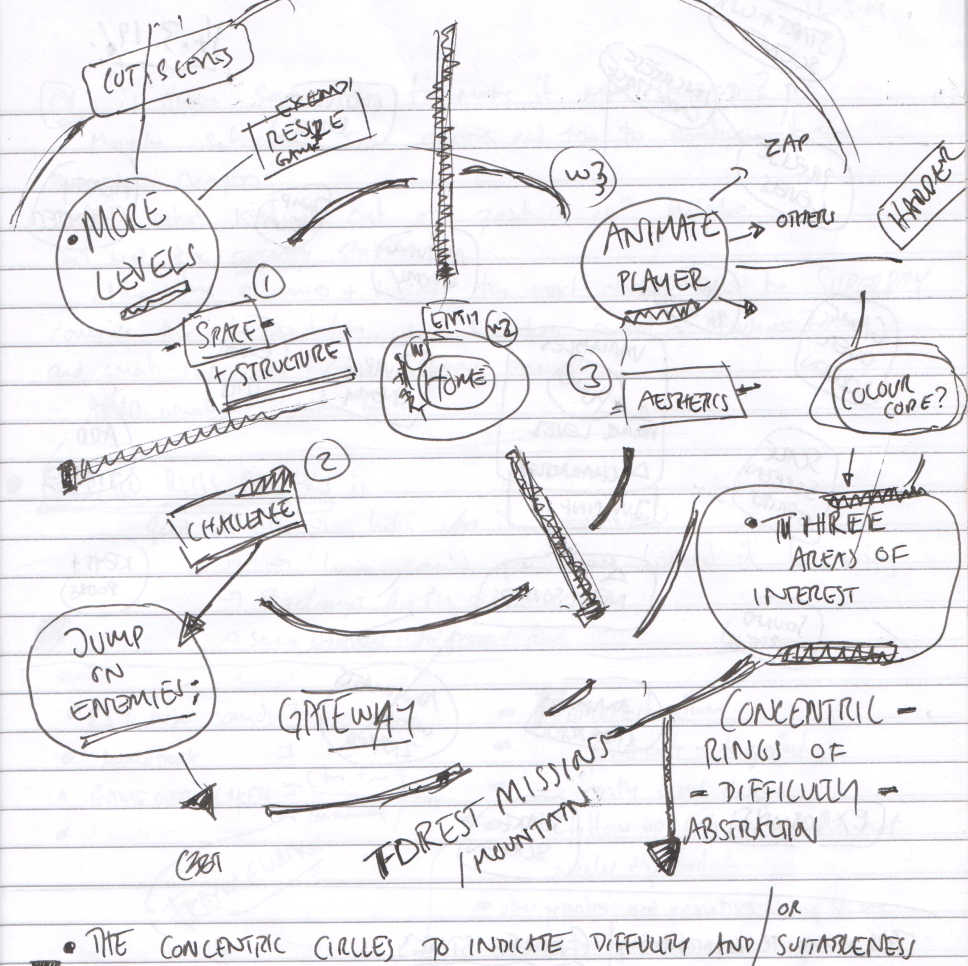 CUT SCENES
EXPAND/
RESIZE
GAME
• MORE
LEVELS
1
SPACE
+ STRUCTURE
W3
ANIMATE
PLAYER
ZAP
OTHERS
HARDER
W2
W1
HOME
3
AESTHETICS
COLOUR
CODE?
2
CHALLENGE
• THREE
AREAS OF
INTEREST
JUMP
ON
ENEMIES;
GATEWAY
FOREST MISSIONS
/ MOUNTAIN
CONCENTRIC -
RINGS OF
- DIFFICULTY -
ABSTRACTION
• THE CONCENTRIC CIRCLES TO INDICATE DIFFULTY AND / OR SUITABLENESS